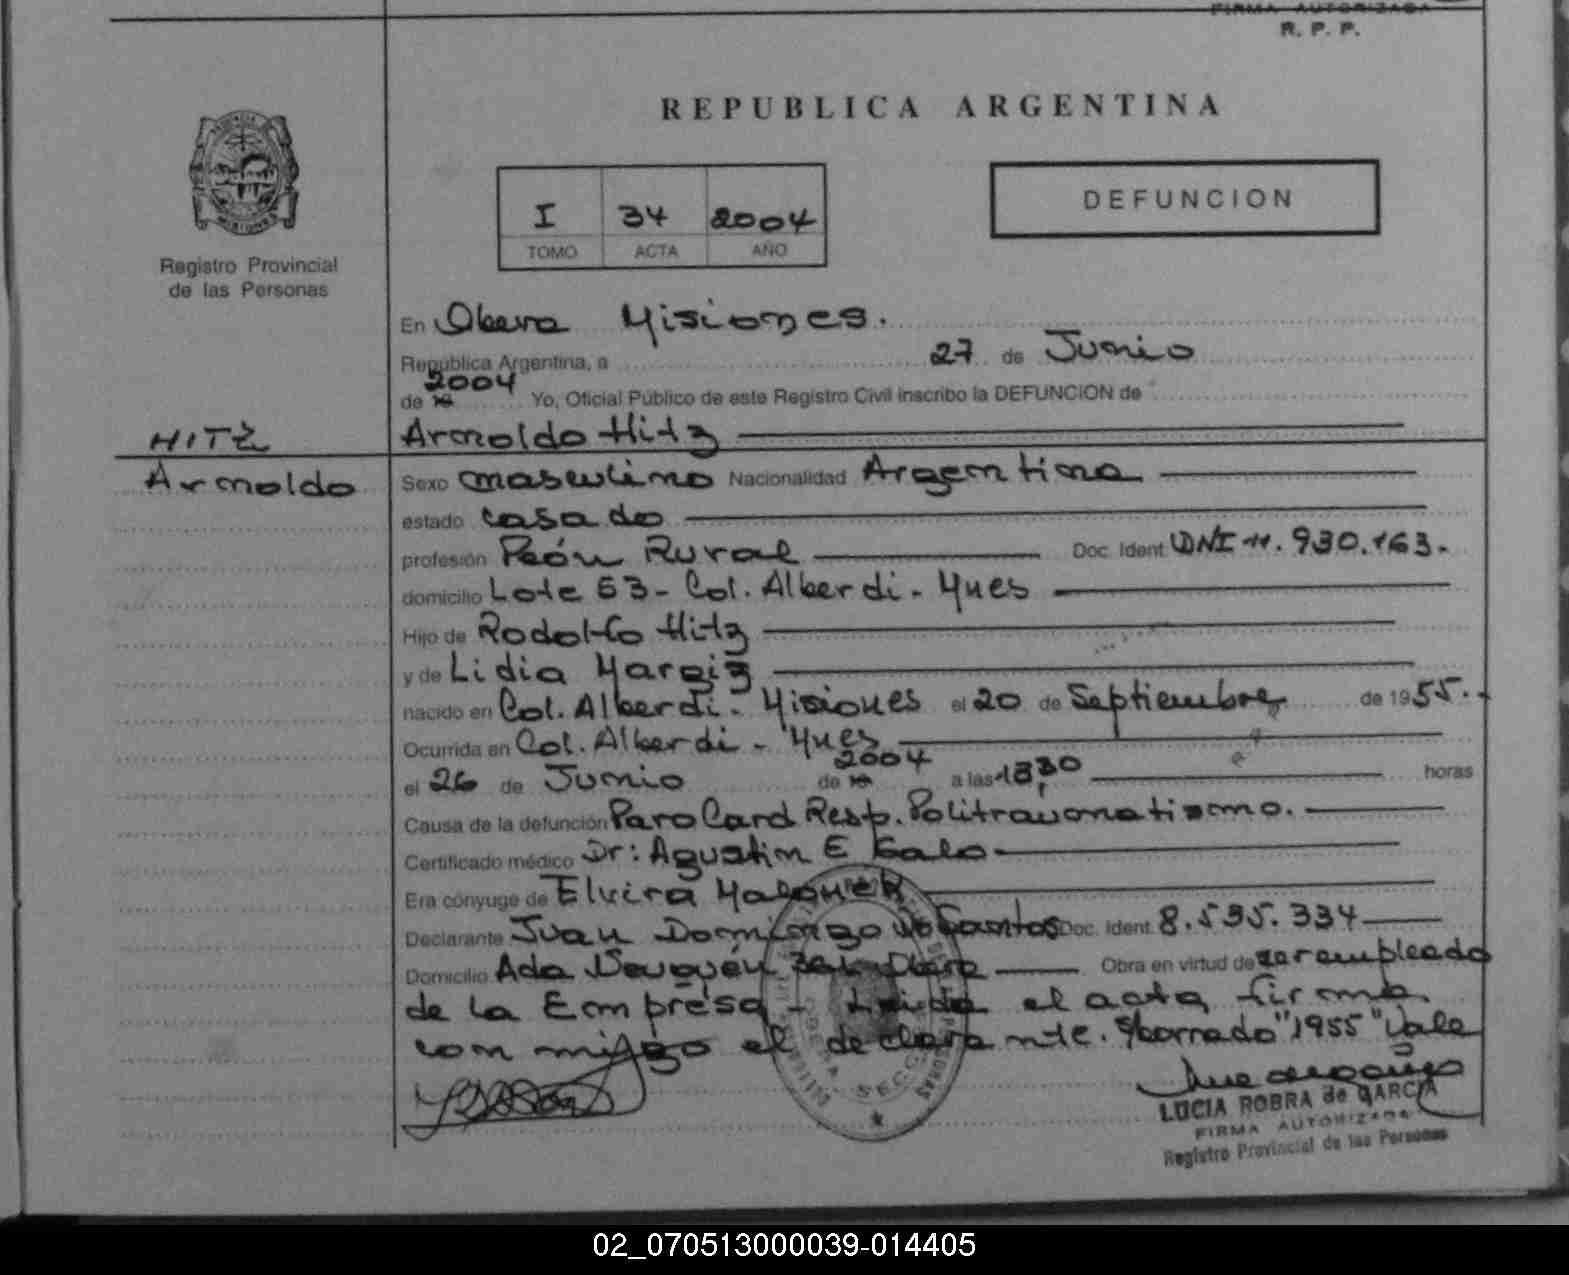 FIRMA AUTORIZADA
R. P. P.
REPUBLICA ARGENTINA
I 34 2004
TOMO ACTA AÑO
DEFUNCION
Registro Provincial
de las Personas
En Obera Misiones.
República Argentina, a 27 de Junio
de 19 2004 Yo, Oficial Público de este Registro Civil inscribo la DEFUNCION de
HITZ
Arnoldo Hitz
Arnoldo
Sexo masculino Nacionalidad Argentina
estado casado
profesión Peón Rural Doc. Ident. DNI 11.930.163.
domicilio Lote 53 - Col. Alberdi - Mnes
Hijo de Rodolfo Hitz
y de Lidia
nacido en Col. Alberdi - Misiones el 20 de Septiembre de 1955.
Ocurrida en Col. Alberdi - Mnes
el 26 de Junio de 19 2004 a las 18,30 horas
Causa de la defunción Paro Card Resp. Politraumatismo.
Certificado médico Dr: Agustin E Galo
Era cónyuge de Elvira
Declarante Juan Domingo Do Santos Doc. Ident. 8.535.334
Domicilio Obra en virtud de ser empleado
de la Empresa - Leida el acta firma
conmigo el declarante. S/borrado "1955" Vale
LUCIA ROBRA de GARCIA
FIRMA AUTORIZADA
Registro Provincial de las Personas
02_070513000039-014405